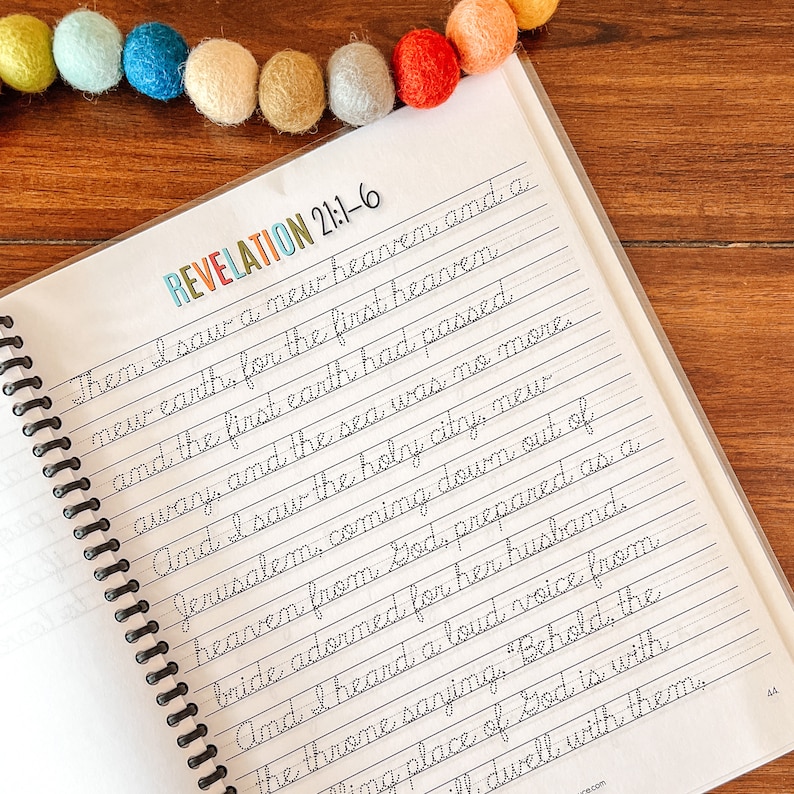 REVELATION 21:1-6
Then I saw a new heaven and a
new earth, for the first heaven
and the first earth had passed
away, and the sea was no more.
And I saw the holy city, new
Jerusalem, coming down out of
heaven from God, prepared as a
bride adorned for her husband.
And I heard a loud voice from
the throne saying, "Behold, the
place of God is with
dwell with them,
44